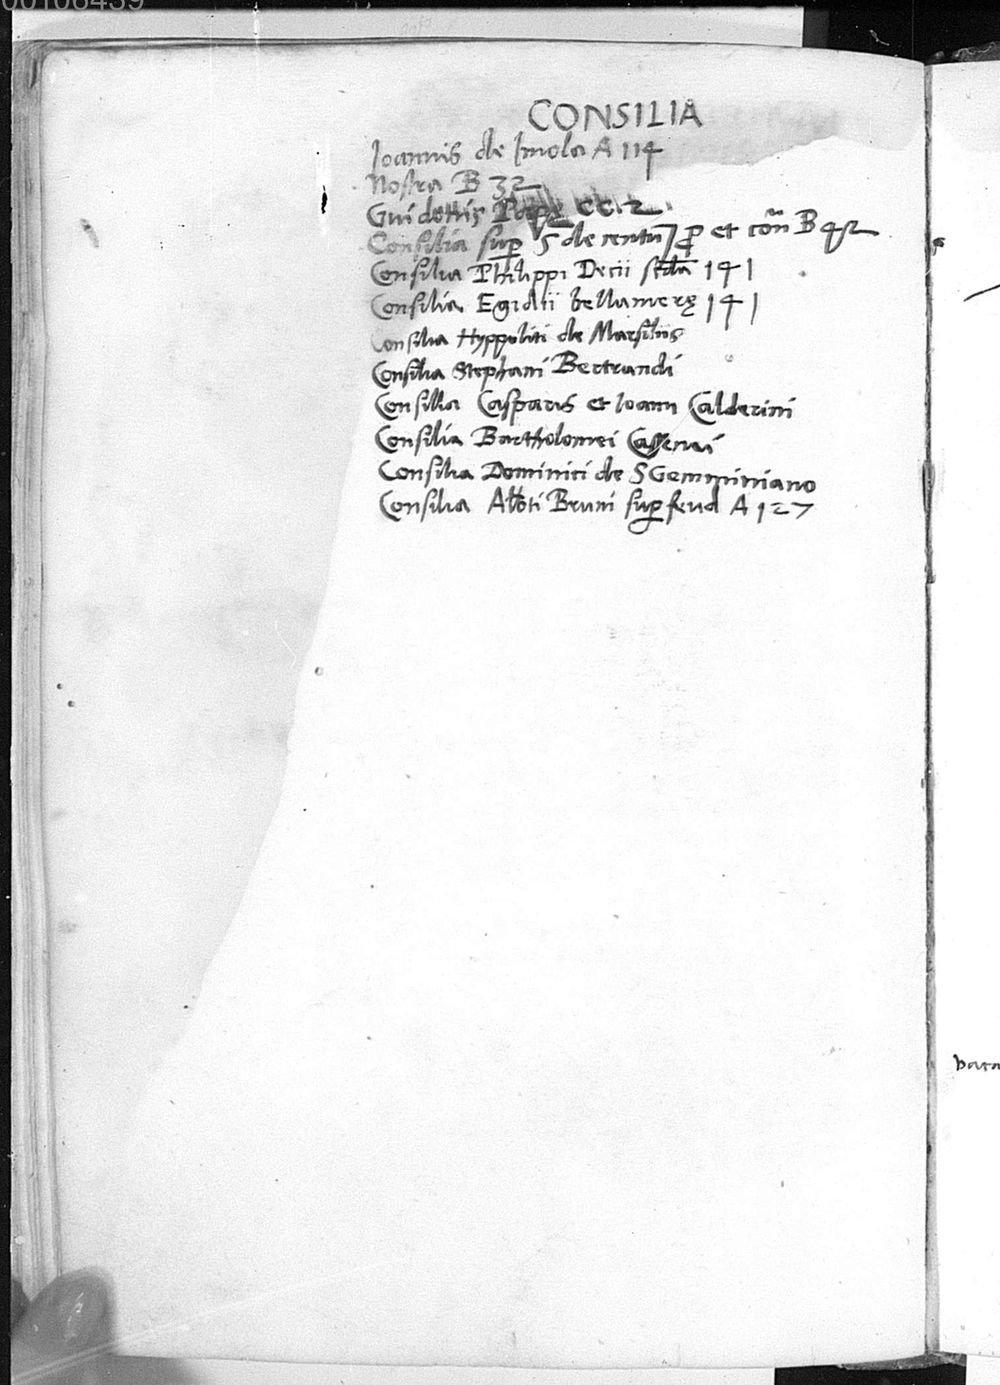 00106439
CONSILIA
Ioannis de Imola A 114
Nostra B 32
Guidonis Papę CC. 2
Consilia sup S de centu ꝓ et coñ B 42
Consilia Philippi Decii scda 141
Consilia Egidii bellamerę 141
Consilia Hyppoliti de Marsiliis
Consilia Stephani Bertrandi
Consilia Casparis et Ioann Calderini
Consilia Bartholomei
Consilia Dominici de S Gemminiano
Consilia Alb̄ti Bruni sup feud A 127